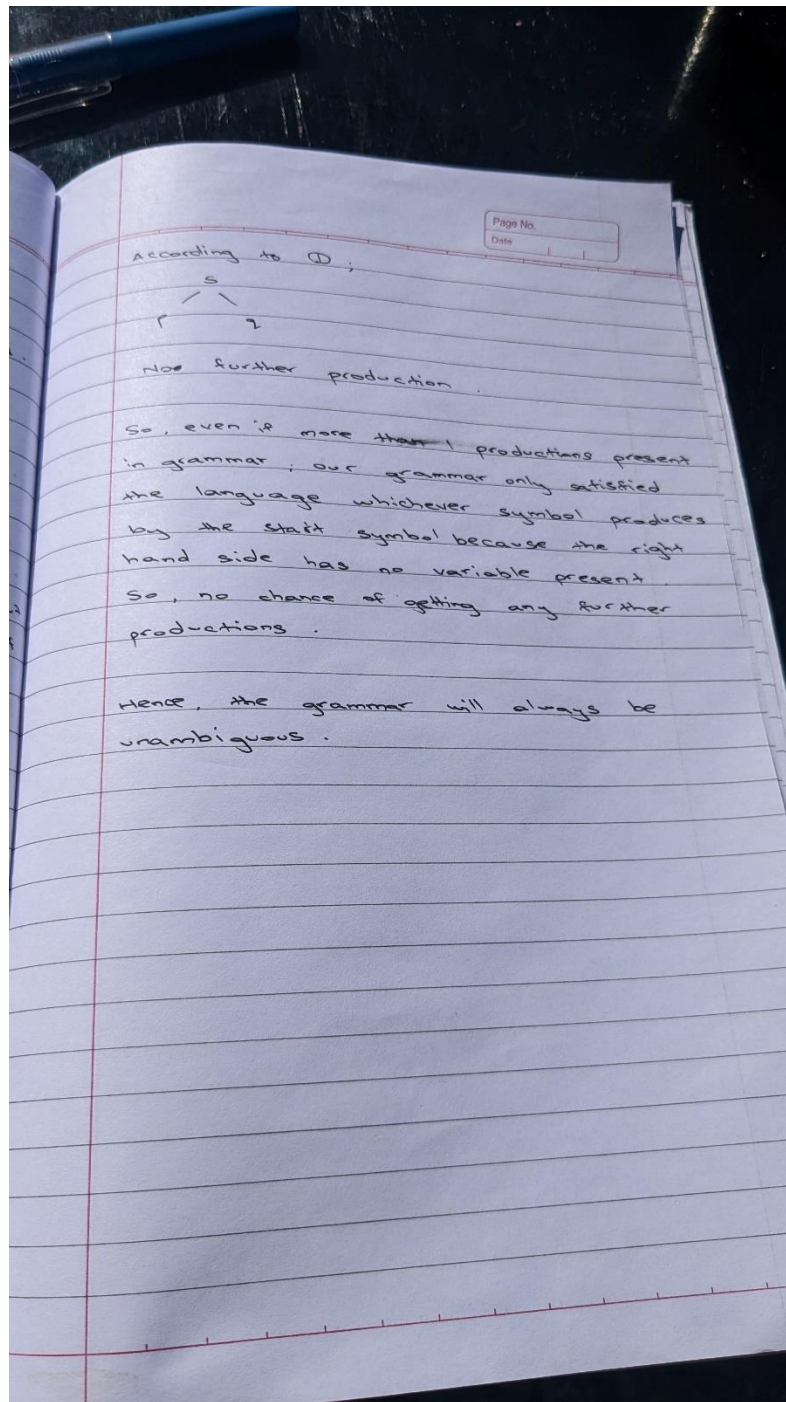 Page No.
Date
According to ①;
S
r q
Noo further production.
So, even if more than 1 productions present
in grammar, our grammar only satisfied
the language whichever symbol produces
by the start symbol because the right
hand side has no variable present.
So, no chance of getting any further
productions.
Hence, the grammar will always be
unambiguous.